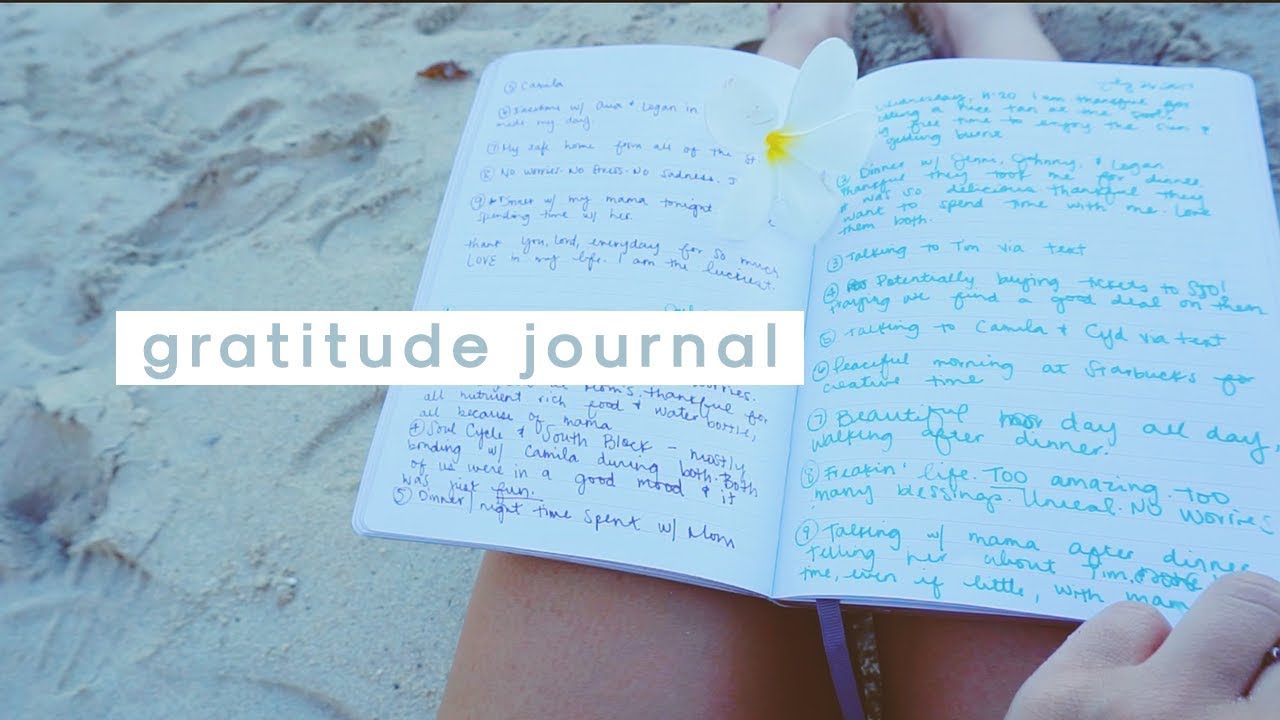 ⑤ Camila
w/ Ava & Logan in
made my day.
⑦ My safe home from all of the
⑧ No worries. No stress. No sadness. I
⑨ Dinner w/ my mama tonight
spending time w/ her.
thank you, Lord, everyday for so much
LOVE in my life. I am the luckiest.
gratitude journal
worries.
at Mom's, thankful for
all nutrient rich food & water bottle,
all because of mama
④ Soul Cycle & South Block - mostly
bonding w/ Camila during both. Both
of us were in a good mood & it
was just fun.
⑤ Dinner/night time spent w/ Mom
I am thankful for
a free tan at the pool.
free time to enjoy the sun &
getting burnt
② Dinner w/ Jenni, Johnny, & Logan
thankful they took me for dinner
it was so delicious thankful they
want to spend time with me. Love
them both.
③ Talking to Tim via text
④ Potentially buying tickets to SJO!
Praying we find a good deal on them
⑤ Talking to Camila & Cyd via text
⑥ Peaceful morning at Starbucks
creative time
⑦ Beautiful day all day,
walking after dinner.
⑧ Freakin' life. TOO amazing. TOO
many blessings. Unreal. No worries
⑨ Talking w/ mama after dinner
telling her about Tim.
time, even if little, with mam